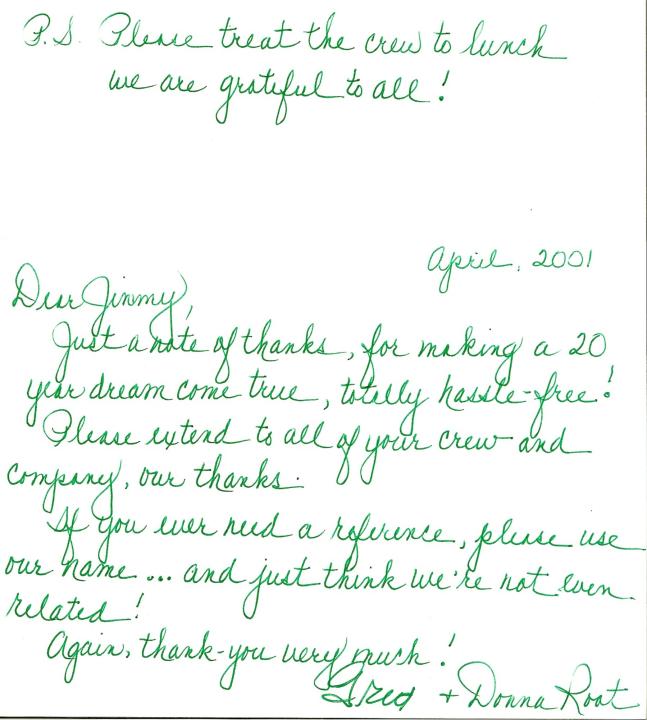 P.S. Please treat the crew to lunch
we are grateful to all!
April, 2001
Dear Jimmy,
Just a note of thanks, for making a 20
year dream come true, totelly hassle-free!
Please extend to all of your crew and
company, our thanks.
If you ever need a reference, please use
our name... and just think we're not even
related!
Again, thank-you very much!
Greg + Donna Root